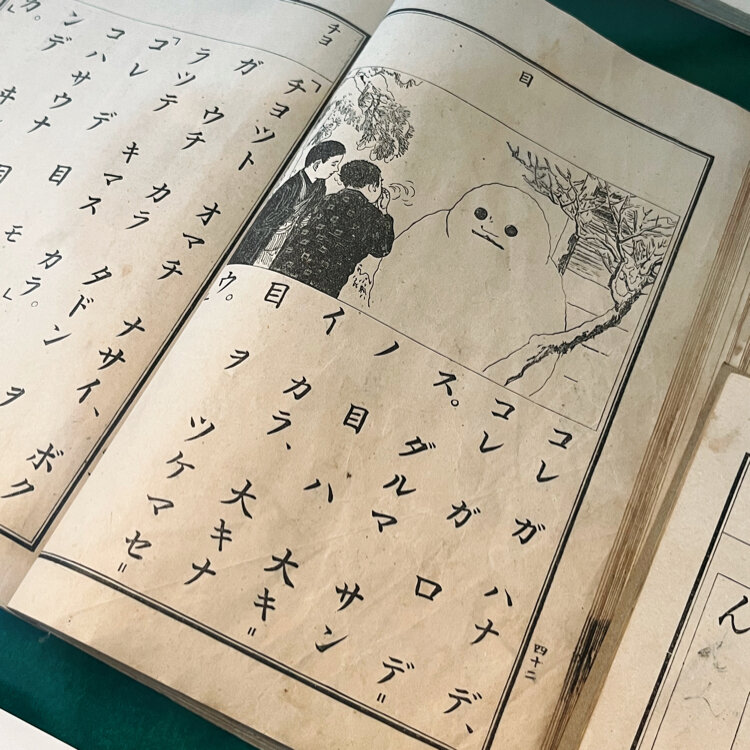 目
コレ ガ ハナ デ、
コレ ガ 口 デ〃
ス。ダルマ サン
ノ 目 ハ 大キ〃
イ カラ、大キナ
目 ヲ ツケマセ〃
ウ。」
四十二
チヨ
「チヨツト オマチ ナサイ、ボク
ガ ウチ カラ タドン ヲ
ラツテ キマス カラ。」
「コレ デ 目 モ
コハサウナ 目
ンデ
カ。」
ん